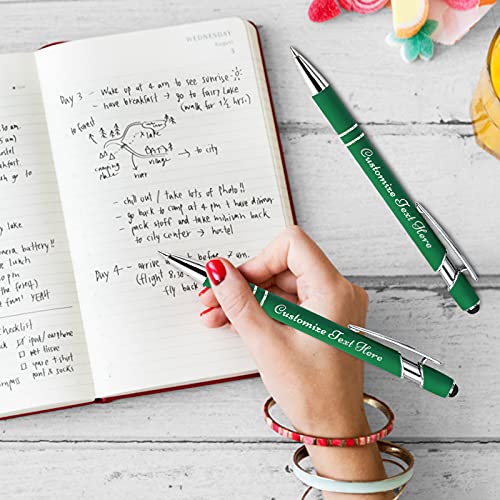 WEDNESDAY
August
3
Day 3 - Wake up at 4 am to see sunrise
- have breakfast → go to fairy lake
(walk for 1½ hrs)
to forest
lake
camping
village
→ to city
river
- chill out / take lots of photo!!
- go back to camp at 4 pm + have dinner
- pack stuff and take minivan back
to city center → hostel
Day 4 - 7 am.
(flight 8:
fly back
am.
battery!!
the forest)
YEAH!
checklist
ipod/earphone
wet tissue
pants & socks
Customize Text Here
Customize Text Here